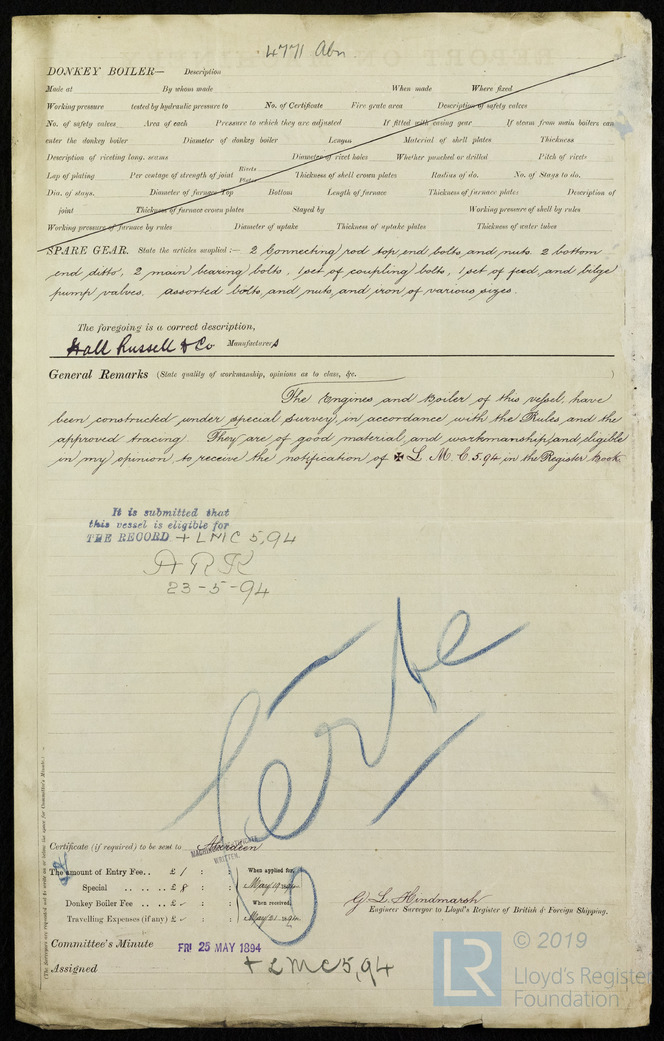 4771 Abn
DONKEY BOILER— Description
Made at By whom made When made Where fixed
Working pressure tested by hydraulic pressure to No. of Certificate Fire grate area Description of safety valves
No. of safety valves Area of each Pressure to which they are adjusted If fitted with easing gear If steam from main boilers can
enter the donkey boiler Diameter of donkey boiler Length Material of shell plates Thickness
Description of riveting long. seams Diameter of rivet holes Whether punched or drilled Pitch of rivets
Lap of plating Per centage of strength of joint Rivets Plates Thickness of shell crown plates Radius of do. No. of Stays to do.
Dia. of stays. Diameter of furnace Top Bottom Length of furnace Thickness of furnace plates Description of
joint Thickness of furnace crown plates Stayed by Working pressure of shell by rules
Working pressure of furnace by rules Diameter of uptake Thickness of uptake plates Thickness of water tubes
SPARE GEAR. State the articles supplied :— 2 Connecting rod top end bolts, and nuts. 2 bottom
end ditto, 2 main bearing bolts, 1 set of coupling bolts, 1 set of feed, and bilge
pump valves, assorted bolts, and nuts, and iron of various sizes.
The foregoing is a correct description,
Hall Russell & Co Manufacturers
General Remarks (State quality of workmanship, opinions as to class, &c.
The Engines and Boiler of this vessel, have
been constructed under special survey, in accordance with the Rules and the
approved tracing. They are of good material, and workmanship, and eligible
in my opinion, to receive the notification of ✠ L. M. C. 5.94 in the Register Book.
It is submitted that
this vessel is eligible for
THE RECORD + LMC 5,94
ARK
23-5-94
Certificate (if required) to be sent to Aberdeen
WRITTEN.
The amount of Entry Fee.. £ 1 : : When applied for,
Special .. .. .. £ 8 : : May 19. 1894
Donkey Boiler Fee .. .. £ : : When received,
Travelling Expenses (if any) £ : : May 21. 1894
G. L. Hindmarsh
Engineer Surveyor to Lloyd's Register of British & Foreign Shipping.
Committee's Minute FRI 25 MAY 1894
Assigned + LMC 5,94
(The Surveyors are requested not to write on or below the space for Committee's Minute.)
LR
© 2019
Lloyd's Register
Foundation